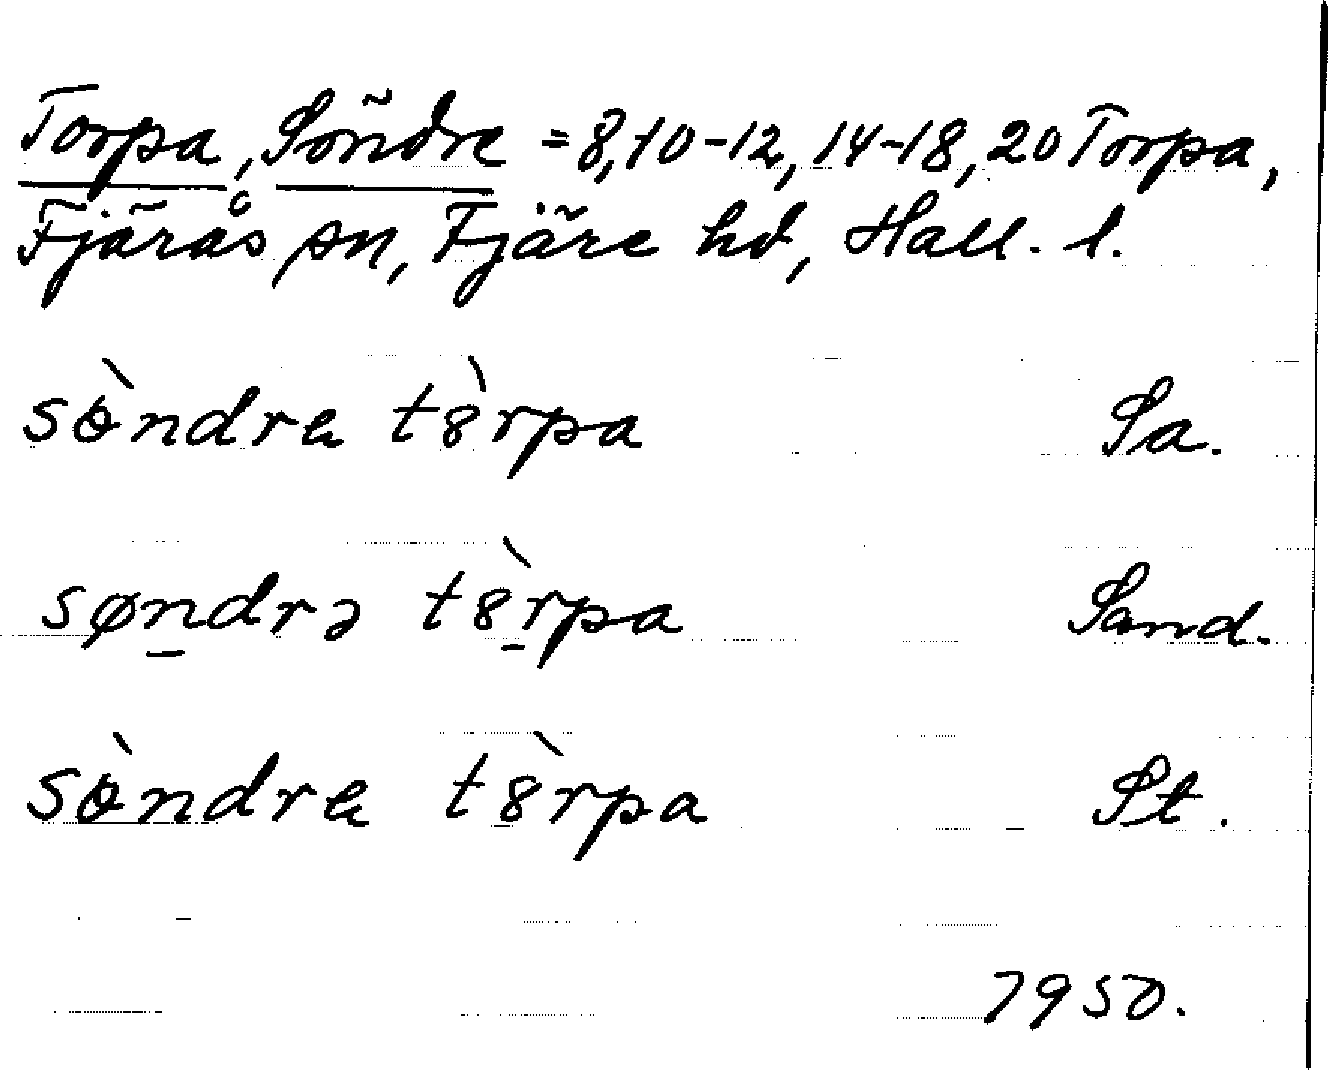 Torpa, Söndre = 8, 10-12, 14-18, 20 Torpa,
Fjärås sn, Fjäre hd, Hall. l.
sɵ̀ndra t8̀rpa Sa.
søndrə t8̀rpa Sand.
sɵ̀ndra t8̀rpa St.
7950.